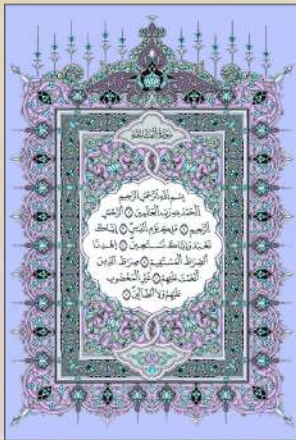 سُورَةُ الْفَاتِحَةِ
بِسْمِ اللَّهِ الرَّحْمَٰنِ الرَّحِيمِ
الْحَمْدُ لِلَّهِ رَبِّ الْعَالَمِينَ ۝ الرَّحْمَٰنِ
الرَّحِيمِ ۝ مَٰلِكِ يَوْمِ الدِّينِ ۝ إِيَّاكَ
نَعْبُدُ وَإِيَّاكَ نَسْتَعِينُ ۝ اهْدِنَا
الصِّرَاطَ الْمُسْتَقِيمَ ۝ صِرَاطَ الَّذِينَ
أَنْعَمْتَ عَلَيْهِمْ ۝ غَيْرِ الْمَغْضُوبِ
عَلَيْهِمْ وَلَا الضَّالِّينَ ۝